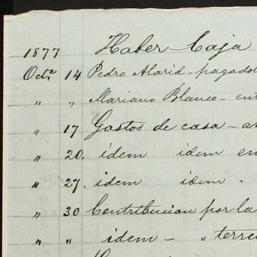 1877 Haber Caja
Octe 14 Pedro Alarid - pagado
" " Mariano Blanco - ent
" 17 Gastos de casa - a
" 20. idem idem en
" 27. idem idem.
" 30 Contribucion por la
" " idem - " terre